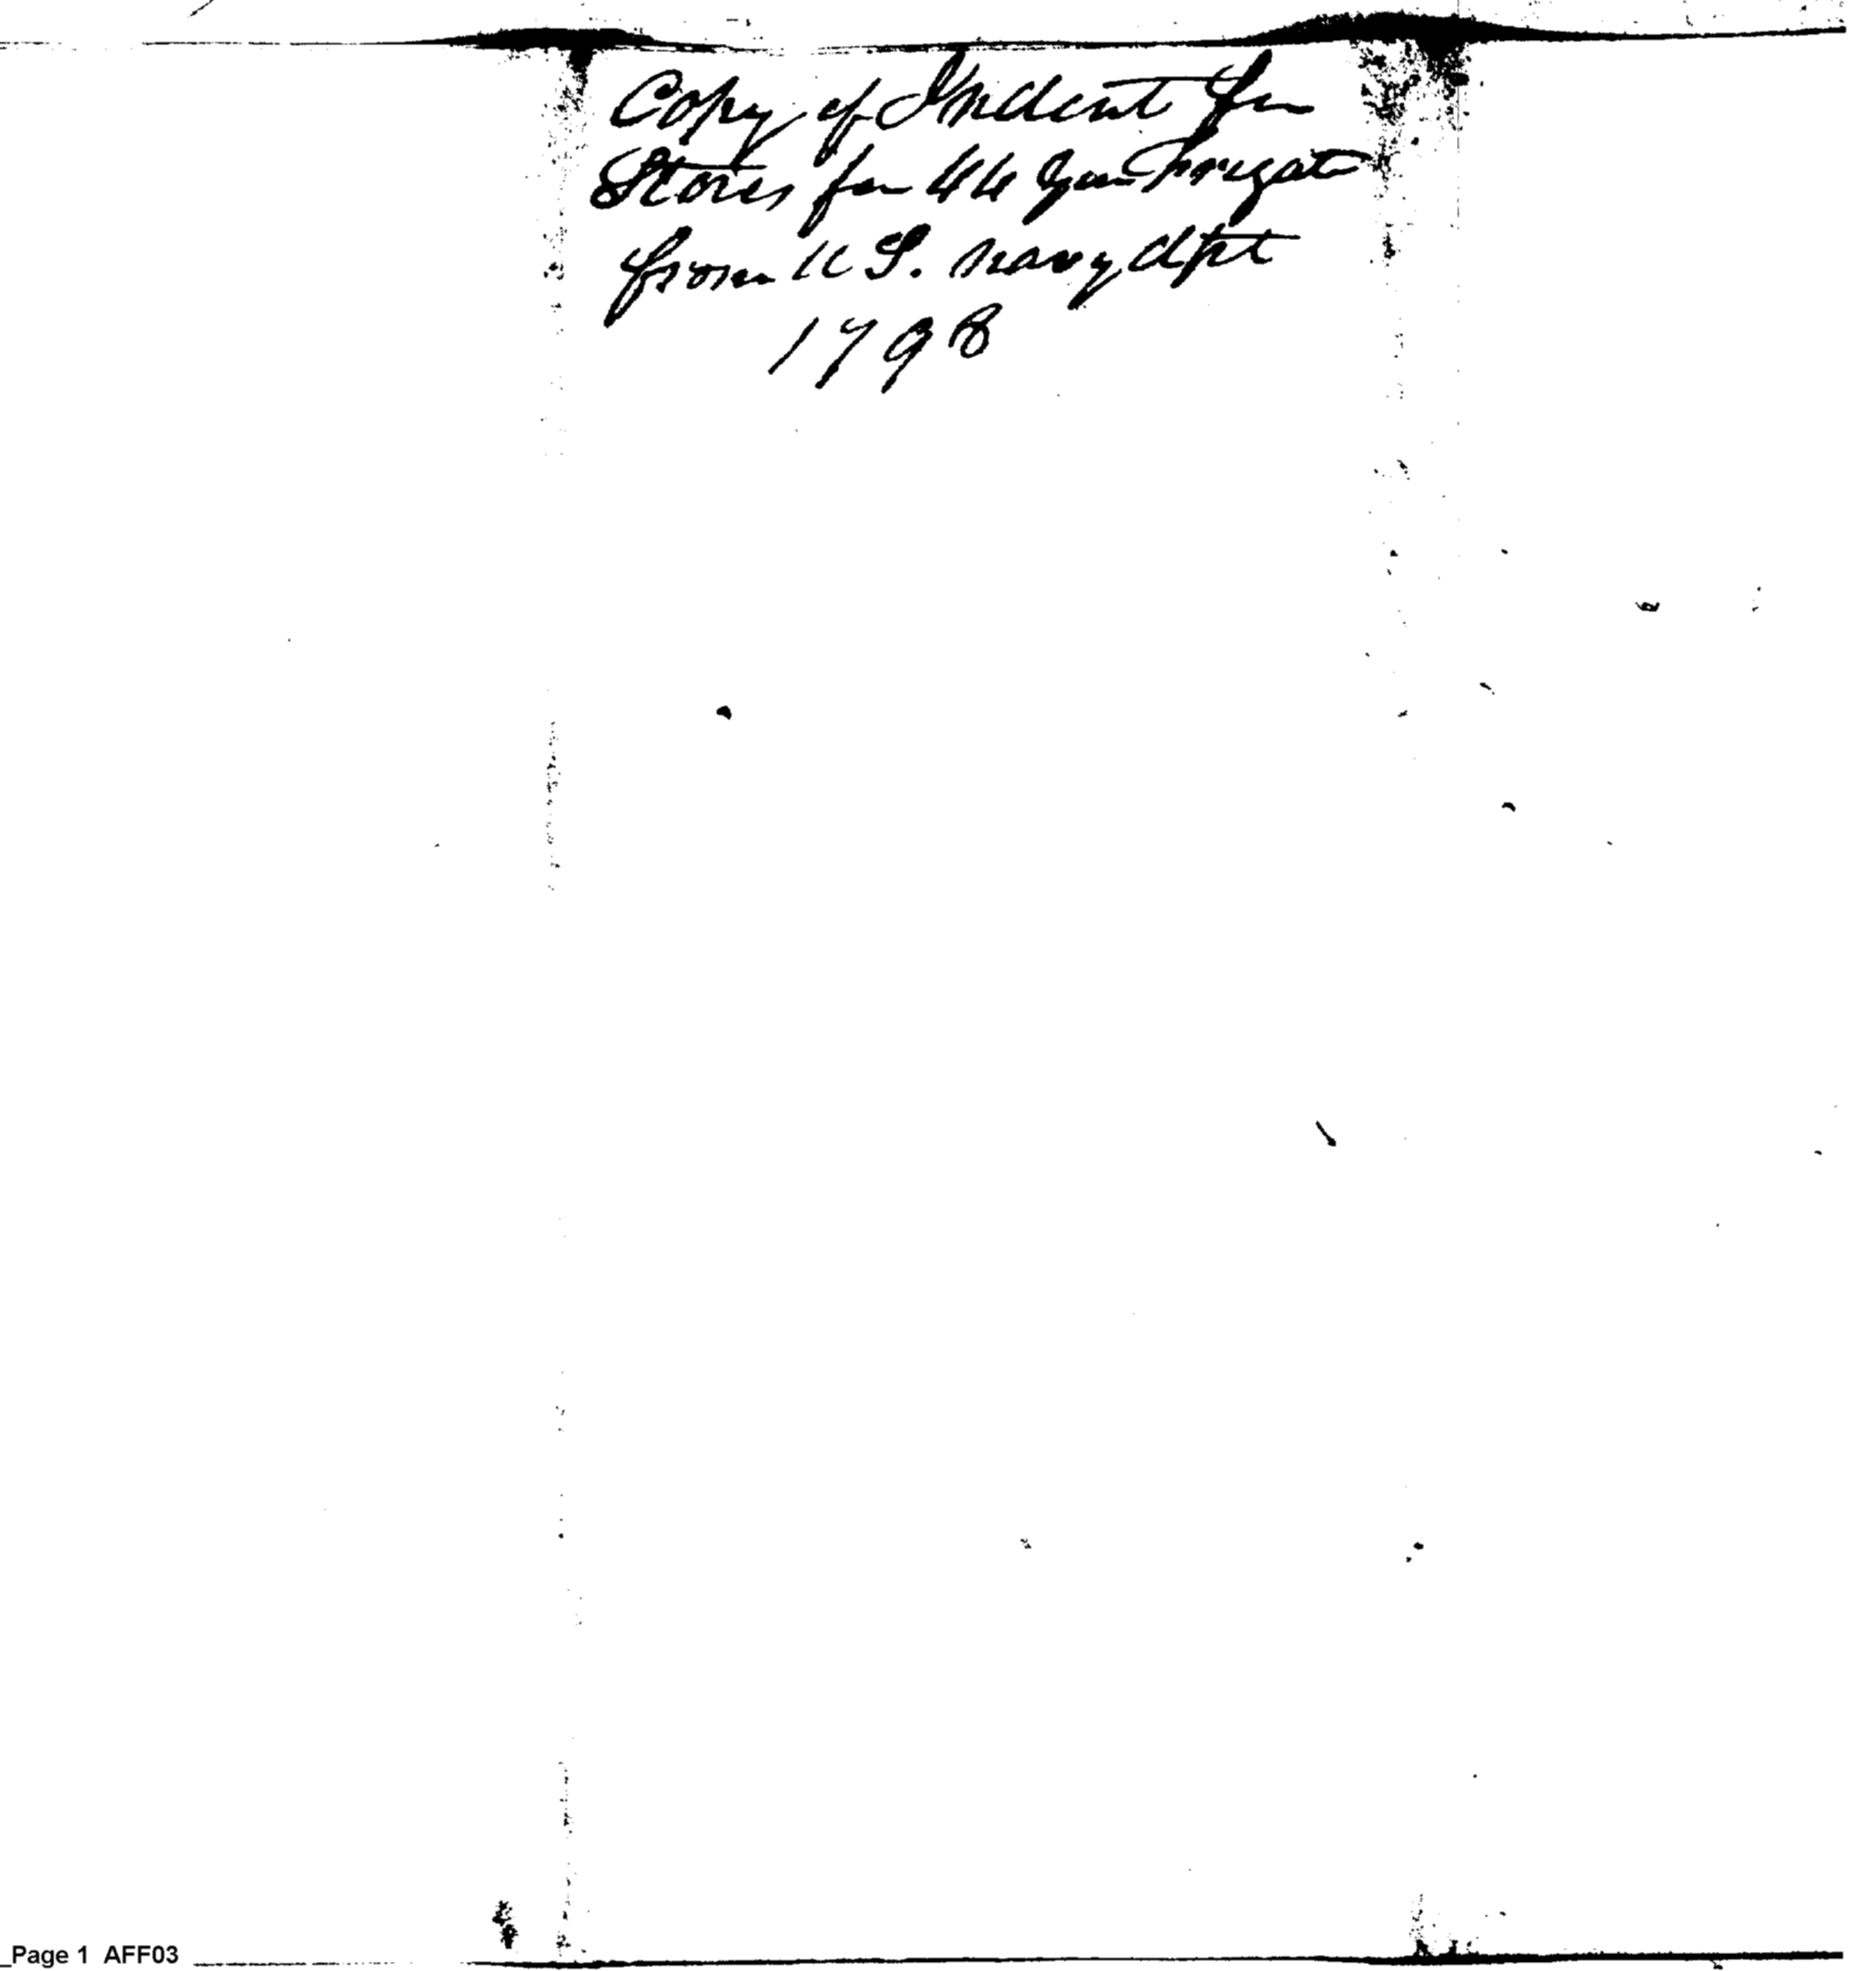 Copy of Indent for
Stores for 44 Gun Frigate
from U S. Navy dept
1798
_Page 1 AFF03